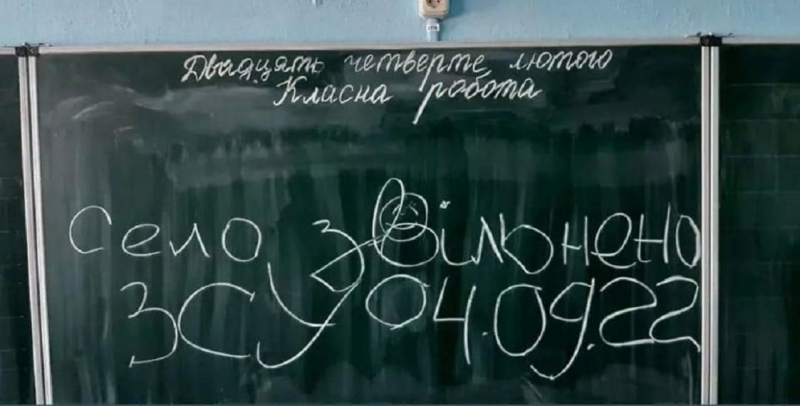 Двадцять четверте лютого
Класна робота
Село звільнено
ЗСУ 04.09.22